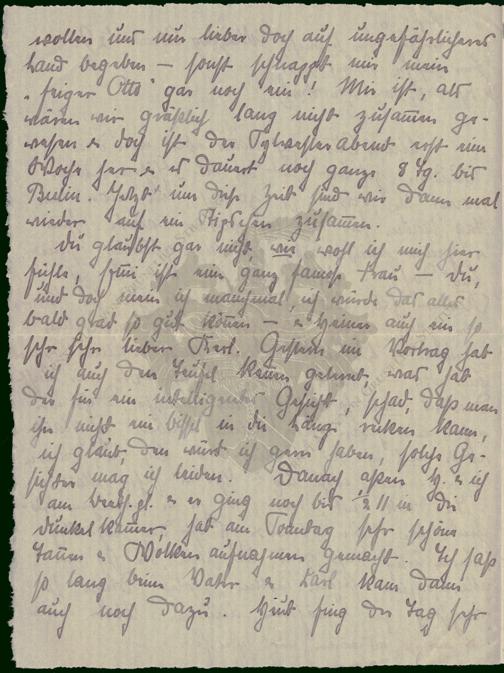 wollen und uns lieber doch auf ungefährlicheres
Land begeben – sonst schnappt mir mein
"feiger Otto" gar noch ein! Mir ist, als
wären wir gräßlich lang nicht zusam̅en ge-
wesen & doch ist der Sylvesterabend erst eine
Woche her & es dauert noch ganze 8 Tg. bis
Berlin. Jetzt um diese Zeit sind wir dann mal
wieder auf ein zusam̅en.
Du glaubst gar nicht, wie wohl ich mich hier
fühle, ist eine ganz famose Frau – Du,
und doch mein ich manchmal, ich würde das alles
bald grad so gut kön̅en – & Heiner auch ein so
sehr sehr lieber Kerl. Gestern im Vortrag hab
ich auch den Teufel ken̅en gelernt, was hat
der für ein intelligentes Gesicht, schad, daß man
ihn nicht ein bissel in die Länge rücken kann,
ich glaub, den würd ich gern haben, solche Ge-
sichter mag ich leiden. Danach aßen H. & ich
am & er ging noch bis ½ 11 in die
Dunkelkam̅er, hat am Son̅tag sehr schöne
Tan̅en & Wolkenaufnahmen gemacht. Ich saß
so lang beim Vater & Karl kam dann
auch noch dazu. Heut fing der Tag sehr